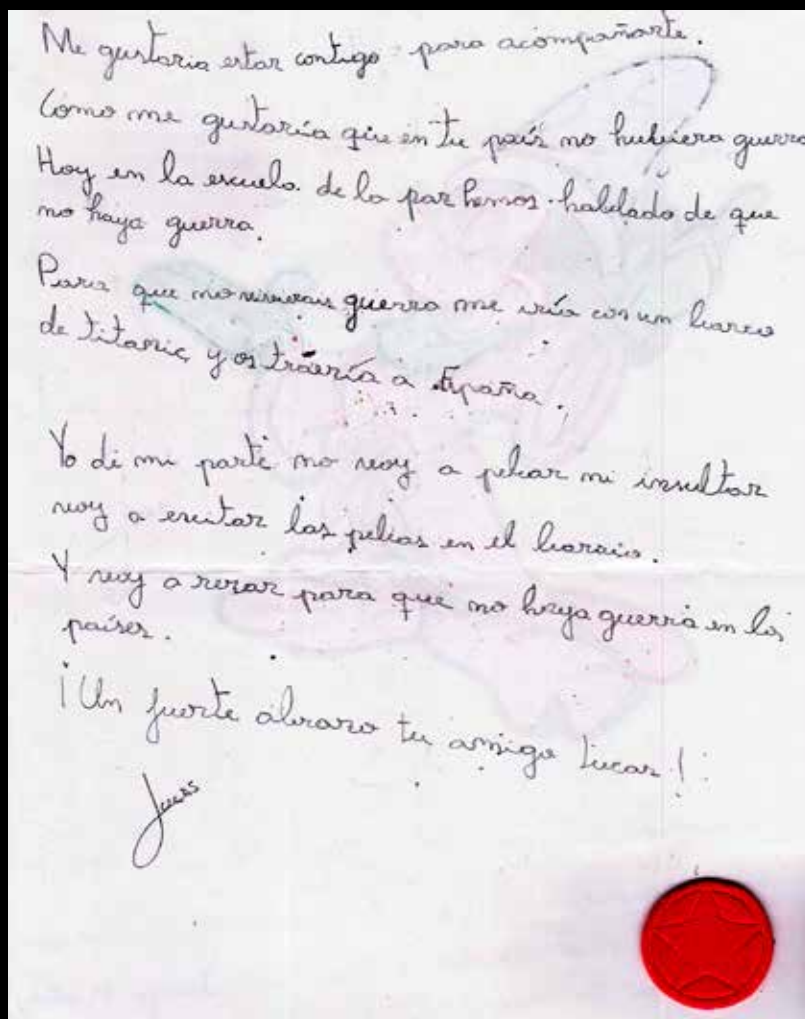 Me gustaria estar contigo para acompañarte.
Como me gustaría que en tu país no hubiera guerra
Hoy en la escuela de la paz hemos hablado de que
no haya guerra.
Para que no vivierais guerra me iría con un barco
de titanic y os traería a España.
Yo de mi parte no voy a pelear ni insultar
voy a evitar las peleas en el
Y voy a rezar para que no haya guerra en los
países.
¡Un fuerte abrazo tu amigo Lucas!
Lucas